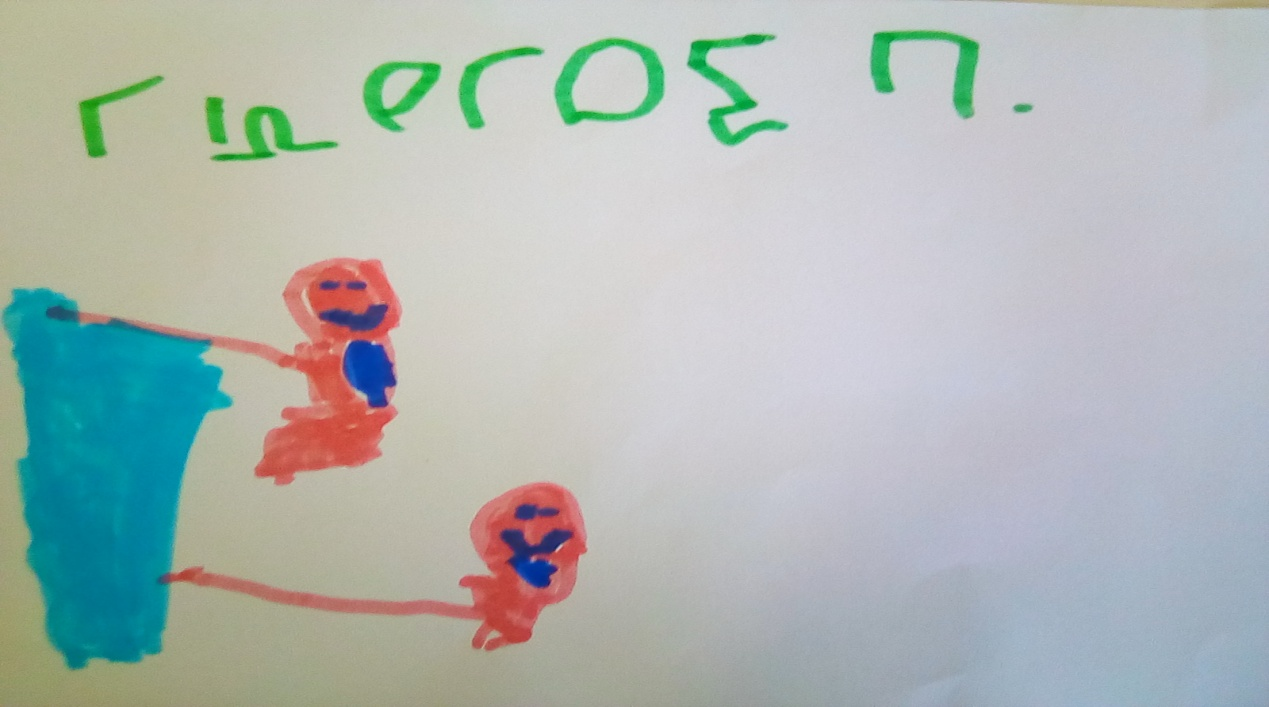 ΓΙΩΡΓΟΣ Π.